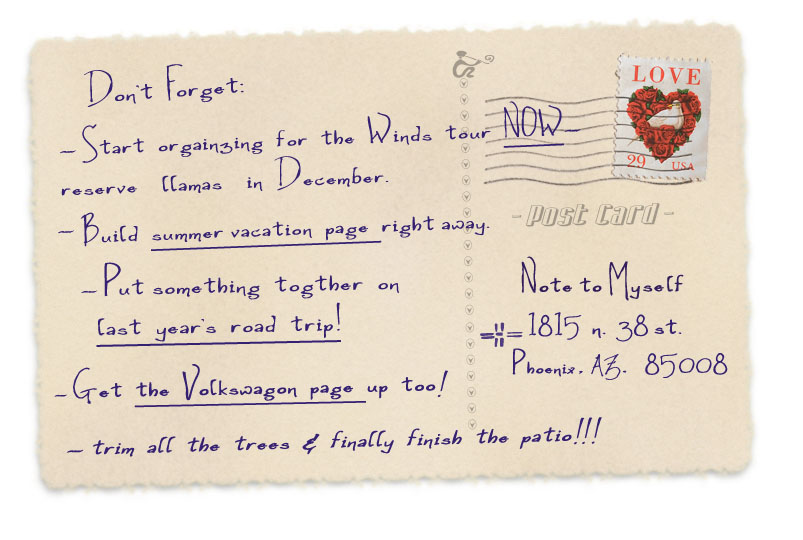 Don't Forget:
– Start orgainzing for the Winds tour NOW–
reserve llamas in December.
– Build summer vacation page right away.
– Put something togther on
last year's road trip!
– Get the Volkswagon page up too!
– trim all the trees & finally finish the patio!!!
LOVE
29 USA
- Post Card -
Note to Myself
1815 n. 38 st.
Phoenix, AZ. 85008